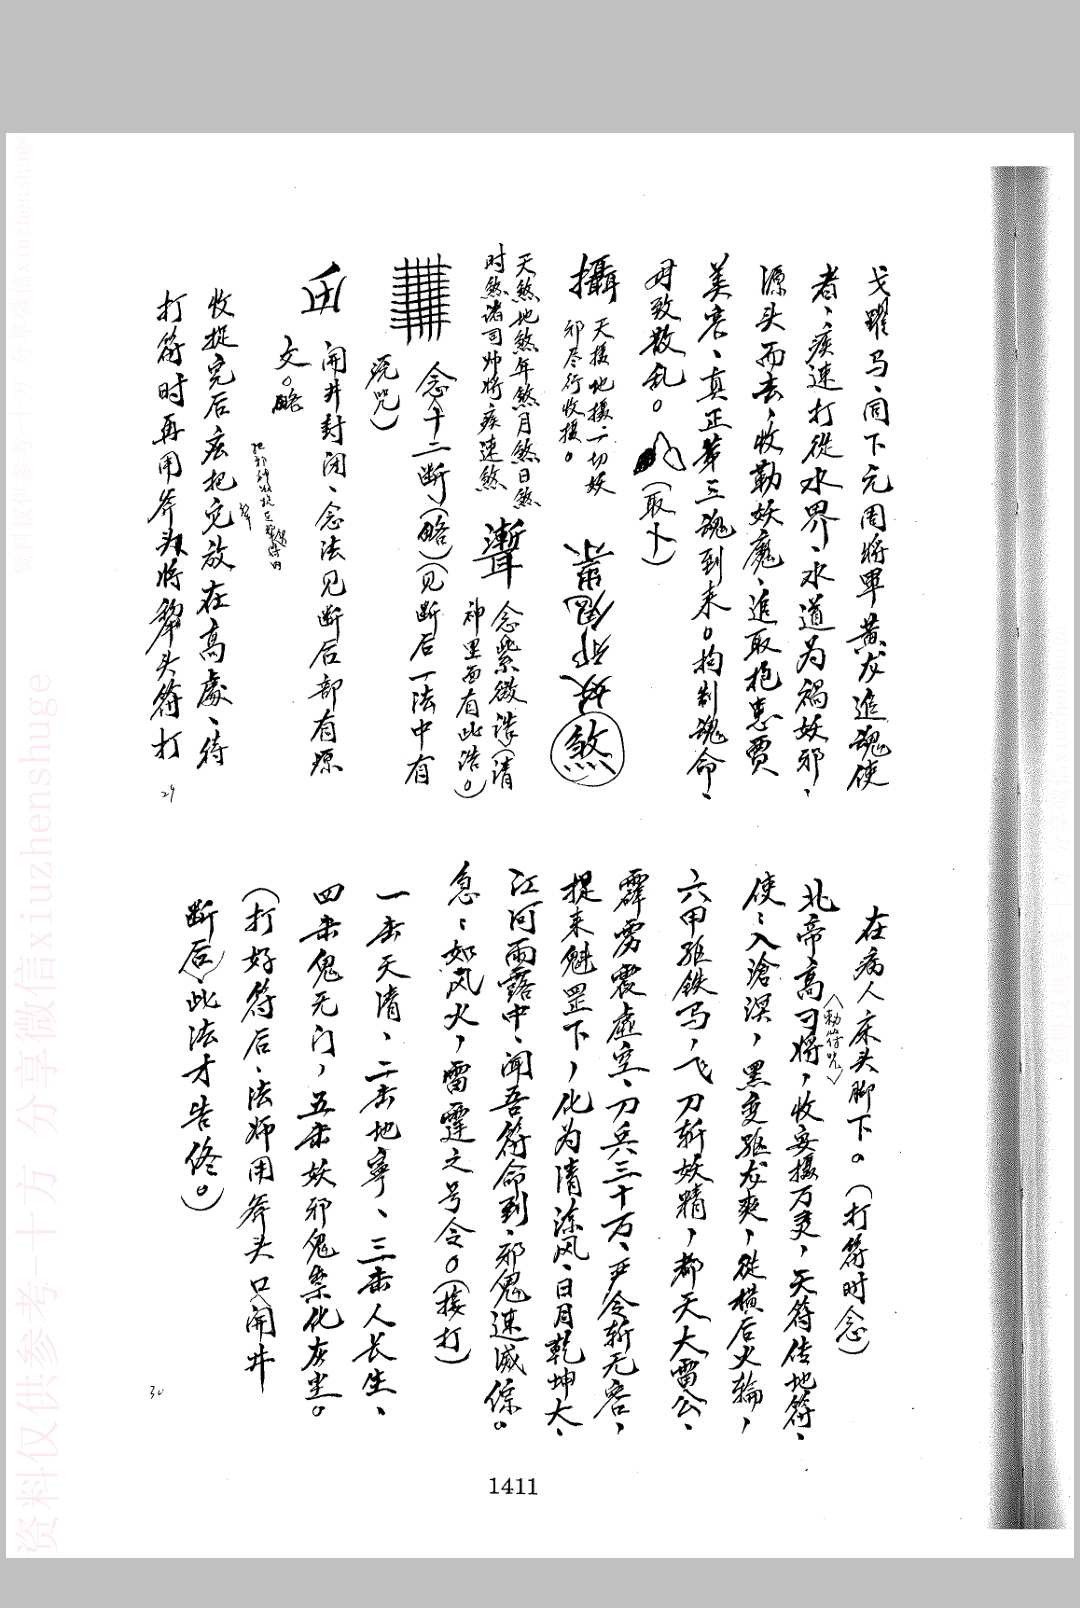 戈躍马、同下元周将軍黄龙追魂使
者、疾速打從水界、水道为禍妖邪、
源头而去，收勒妖魔、追取抱患賈
美容、真正第三魂到来。拘制魂命、
毋致散乱。(取卜)
攝 天攝地攝一切妖
邪尽行收攝。
煞
天煞地煞年煞月煞日煞
时煞诸司帅将疾速煞
念紫微浩(清
神里面有此浩。)
念十二断(略)(见断后一法中有
洗咒)
開井封闭、念法见断后部有原
文。略
收捉完后应把它放在高處、待
打符时再用斧头将犂头符打
29
在病人床头脚下。(打符时念)
(勅符咒)
北帝高刁将，收妄攝万灵，天符佳地符、
使、入滄溟，黑变驱龙爽，從横后火輪，
六甲驱铁马，飞刀斩妖精，都天大雷公、
霹雳震虚空、刀兵三十万、严令斩无容，
提来魁罡下，化为清凉风、日月乾坤大、
江河雨露中、闻吾符命到、邪鬼速滅综。
急、如风火，雷霆之号令。(接打)
一击天清、二击地寧、三击人长生、
四击鬼无门，五击妖邪鬼祟化灰尘。
(打好符后、法师用斧头口開井
断后)此法才告终。)
30
1411
资料仅供参考-十方 分享微信xiuzhenshuge